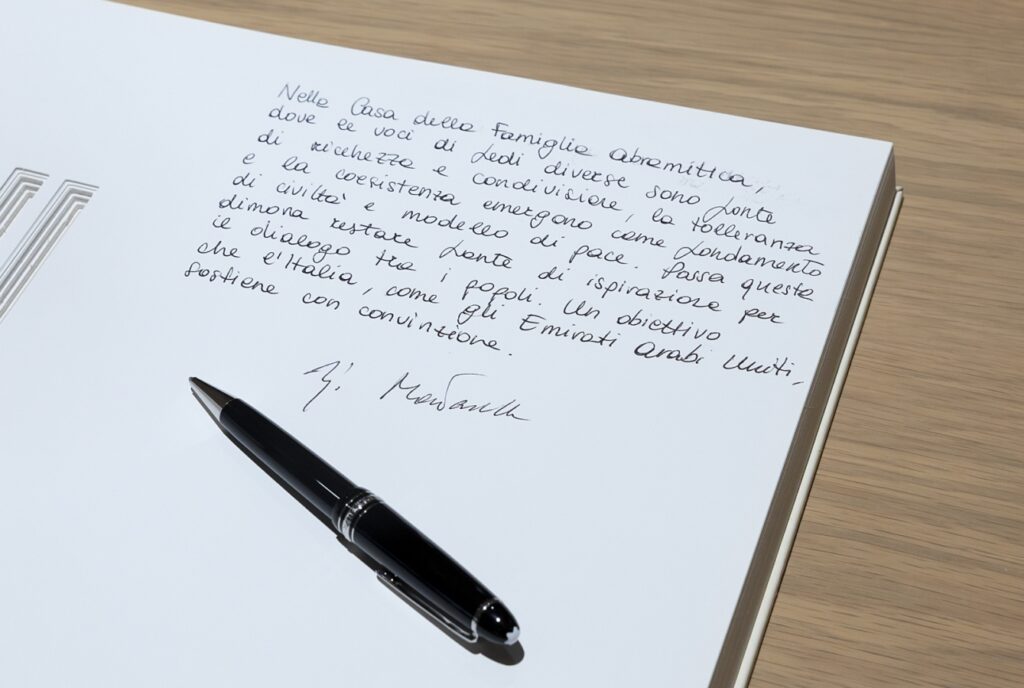 Nella Casa della Famiglia abramitica,
dove le voci di fedi diverse sono fonte
di ricchezza e condivisione, la tolleranza
e la coesistenza emergono come fondamento
di civiltà e modello di pace. Possa questa
dimora restare fonte di ispirazione per
il dialogo tra i popoli. Un obiettivo
che l'Italia, come gli Emirati Arabi Uniti,
sostiene con convinzione.